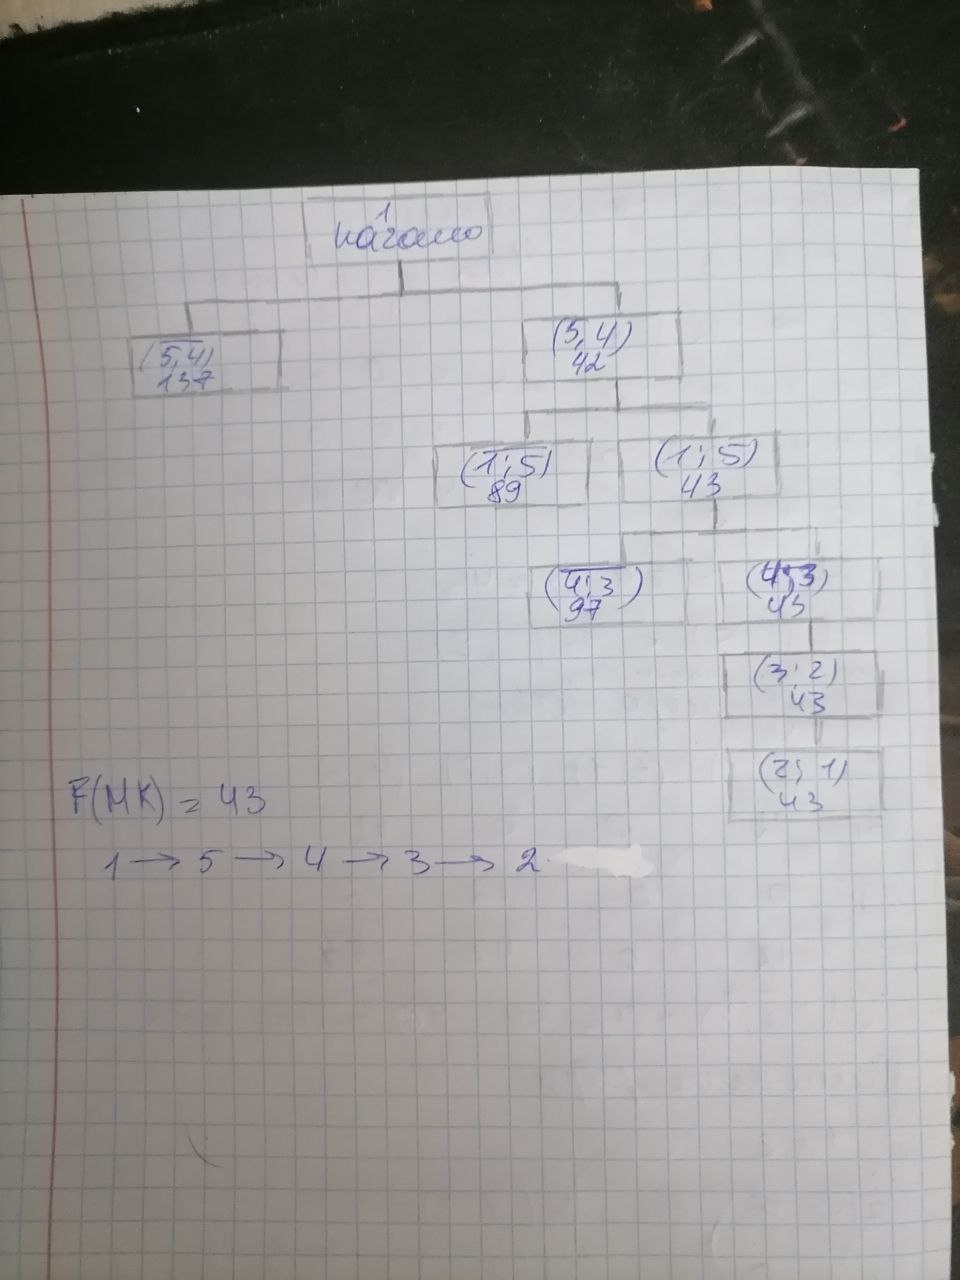 1
начало
(5,4)
137
(5,4)
42
(1;5)
89
(1;5)
43
(4;3)
97
(4;3)
43
(3;2)
43
(2;1)
43
F(MK) = 43
1 → 5 → 4 → 3 → 2